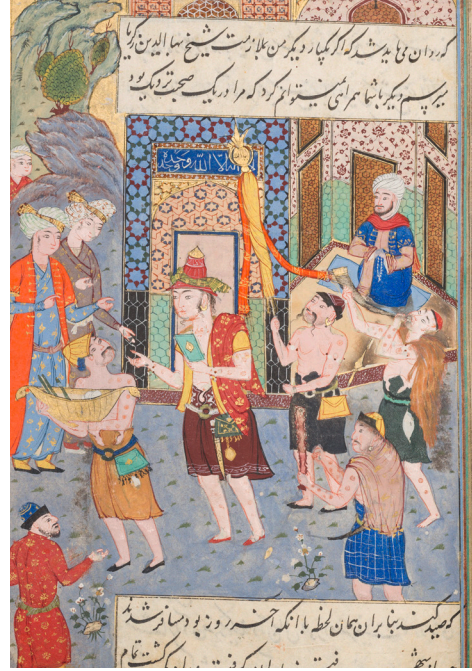 که روان می باید شد که اگر یکبار دیگر من بملازمت شیخ بهاالدین زکریا
میرسم دیگر با شما همراهی نمیتوانم کرد که مرا در یک صحبت نزدیک بود
اله الا الله وحده
که صید کند بنابران همان لحظه با آنکه آخر روز بود مسافر شدند
تمام